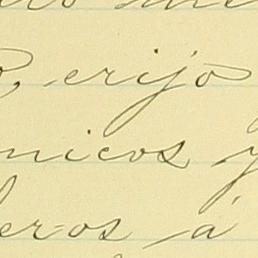 o, erijo
nicos y
eros á